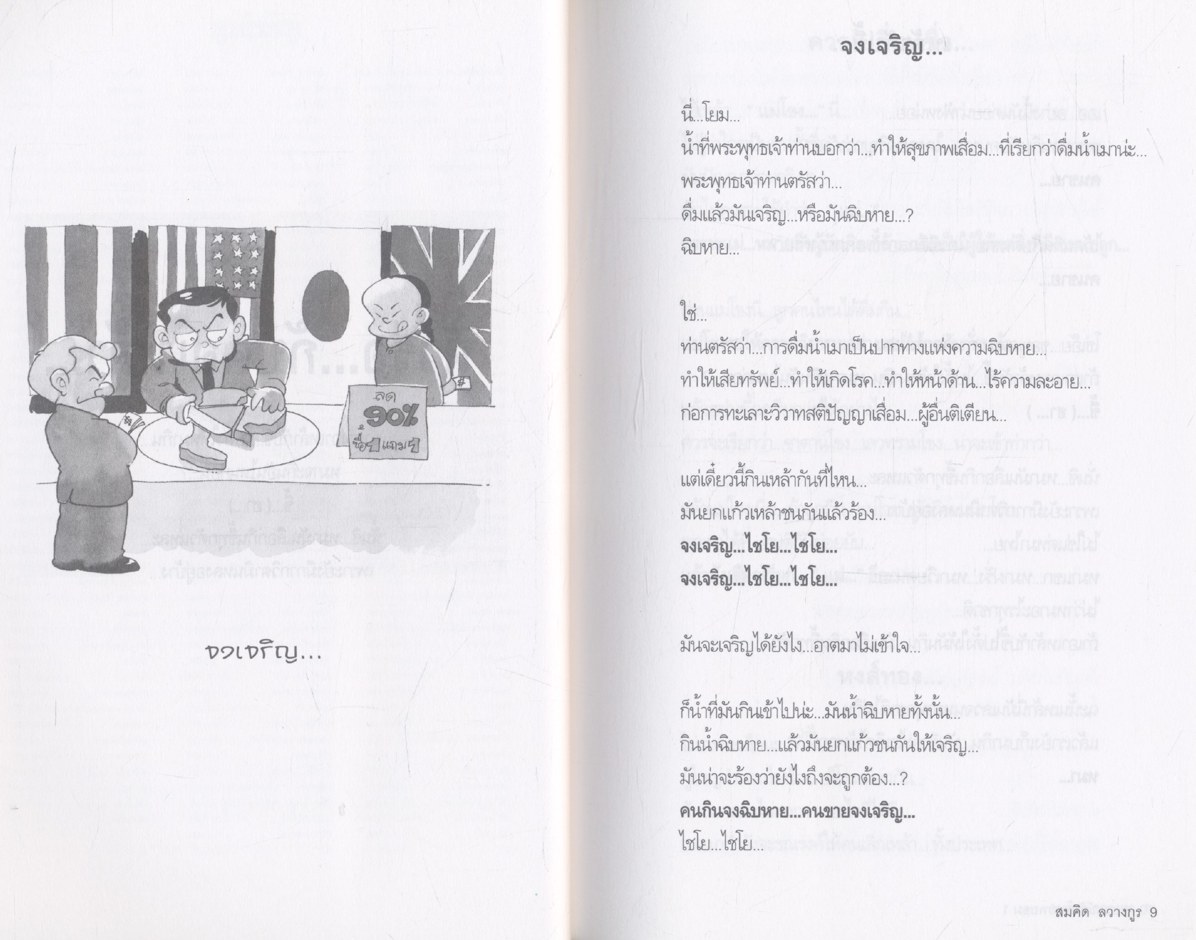 ลด
90%
ซื้อปู่แถมปู่
จงเจริญ...
จงเจริญ...
นี่...โยม...
น้ำที่พระพุทธเจ้าท่านบอกว่า...ทำให้สุขภาพเสื่อม...ที่เรียกว่าดื่มน้ำเมาน่ะ...
พระพุทธเจ้าท่านตรัสว่า...
ดื่มแล้วมันเจริญ...หรือมันฉิบหาย...?
ฉิบหาย...
ใช่...
ท่านตรัสว่า...การดื่มน้ำเมาเป็นปากทางแห่งความฉิบหาย...
ทำให้เสียทรัพย์...ทำให้เกิดโรค...ทำให้หน้าด้าน...ไร้ความละอาย...
ก่อการทะเลาะวิวาทสติปัญญาเสื่อม...ผู้อื่นติเตียน...
แต่เดี๋ยวนี้กินเหล้ากันที่ไหน...
มันยกแก้วเหล้าชนกันแล้วร้อง...
จงเจริญ...ไชโย...ไชโย...
จงเจริญ...ไชโย...ไชโย...
มันจะเจริญได้ยังไง...อาตมาไม่เข้าใจ...
ก็น้ำที่มันกินเข้าไปน่ะ...มันน้ำฉิบหายทั้งนั้น...
กินน้ำฉิบหาย...แล้วมันยกแก้วชนกันให้เจริญ...
มันน่าจะร้องว่ายังไงถึงจะถูกต้อง...?
คนกินจงฉิบหาย...คนขายจงเจริญ...
ไชโย...ไชโย...
สมคิด ลวางกูร 9